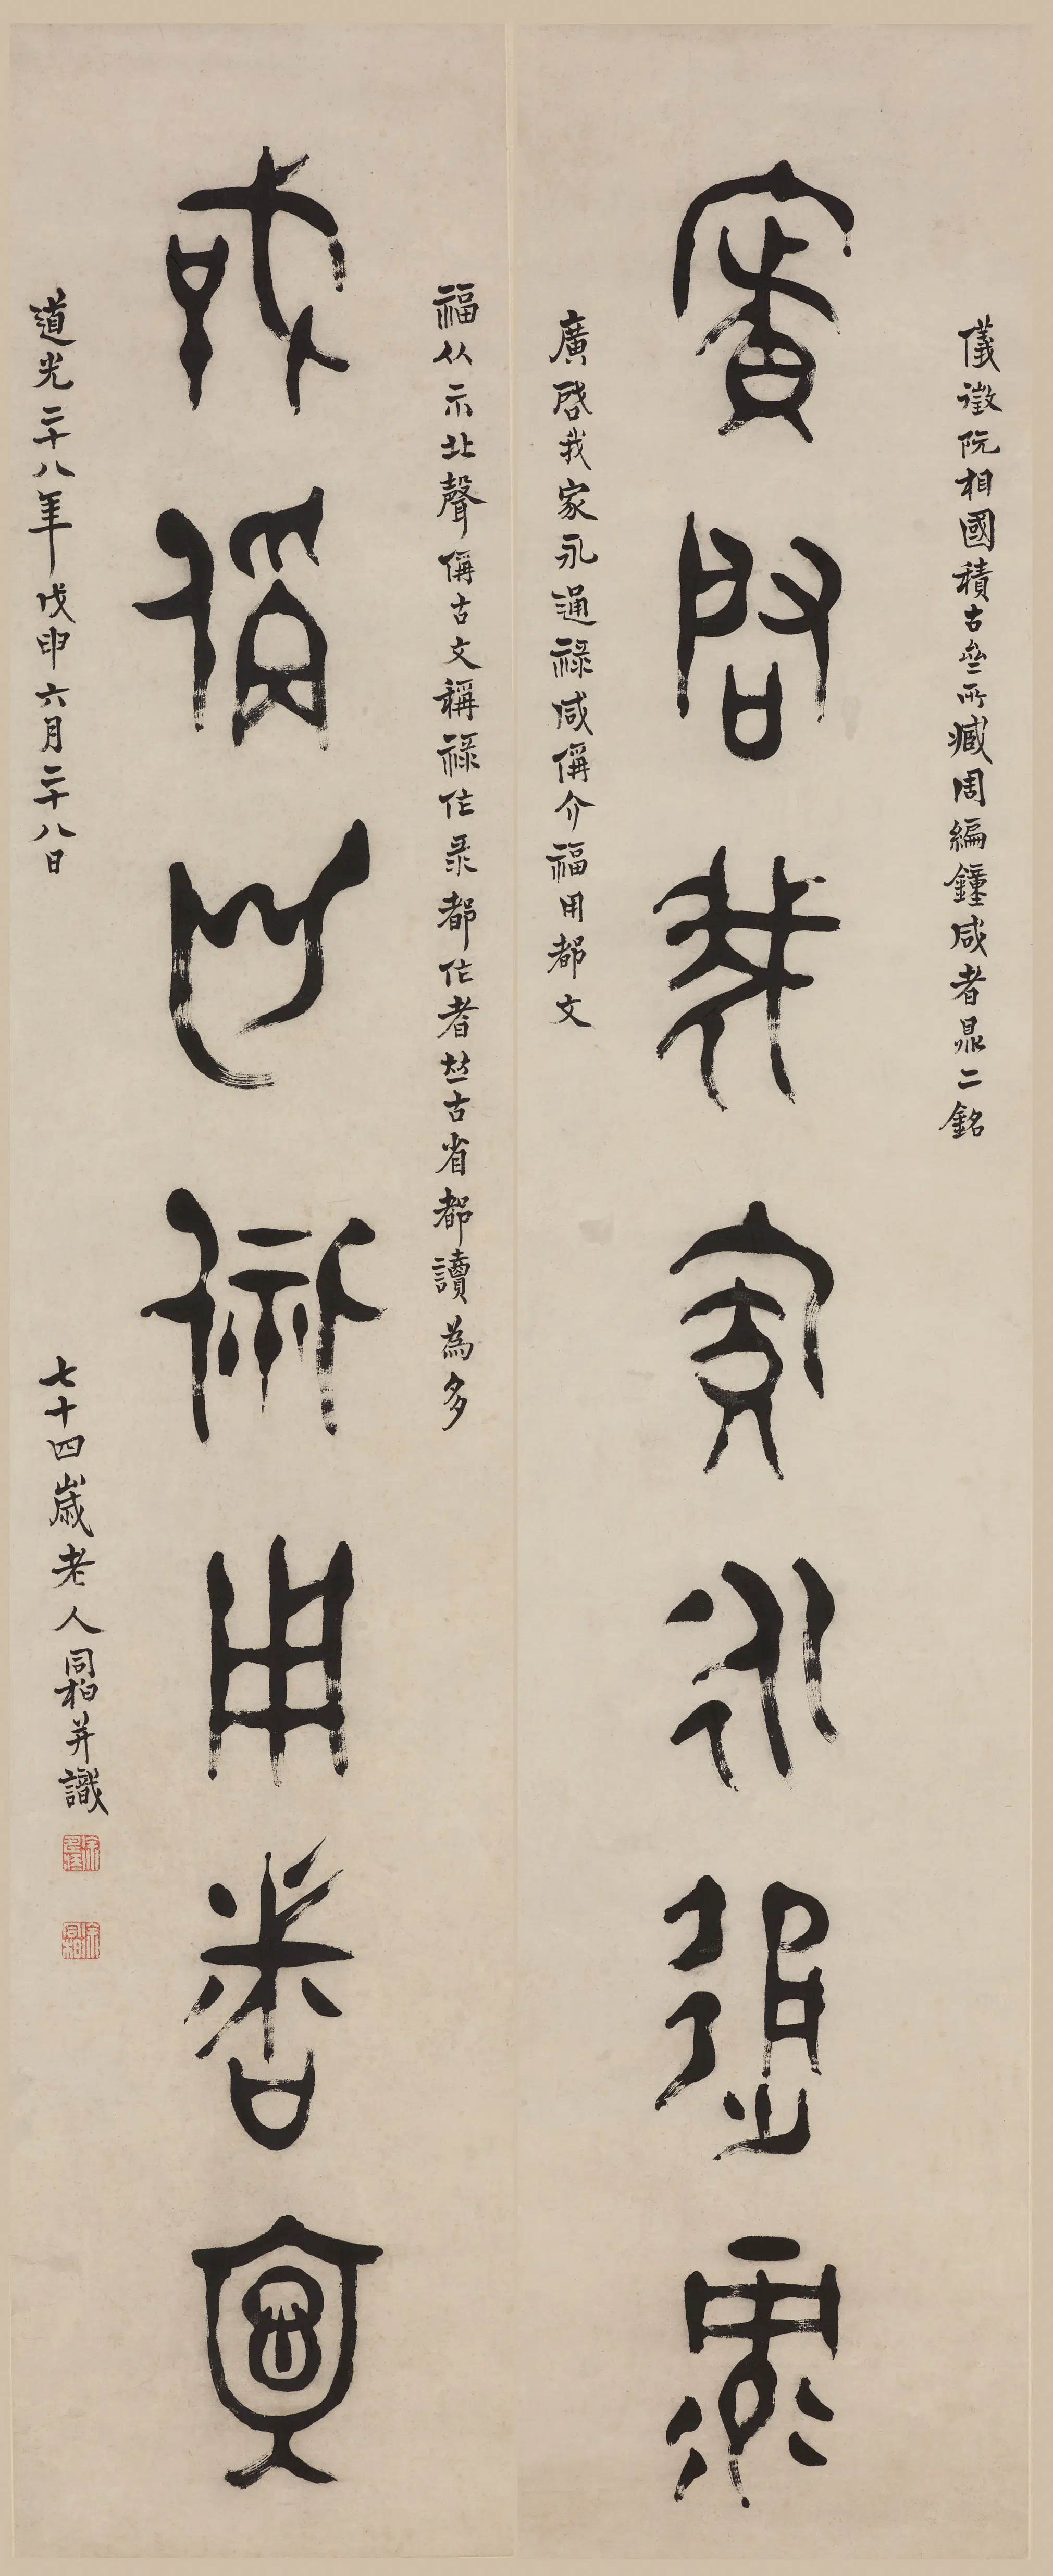 儀徵阮相國積古亝所臧周編鐘咸者鼎二銘
廣啓我家永通祿
廣啓我家永通祿咸偁介福用都文
福从示北聲偁古文稱祿作彔都作者𠀤古省都讀為多
咸偁介福用都文
道光二十八年戊申六月二十八日 七十四歲老人同柏并識
徐同柏